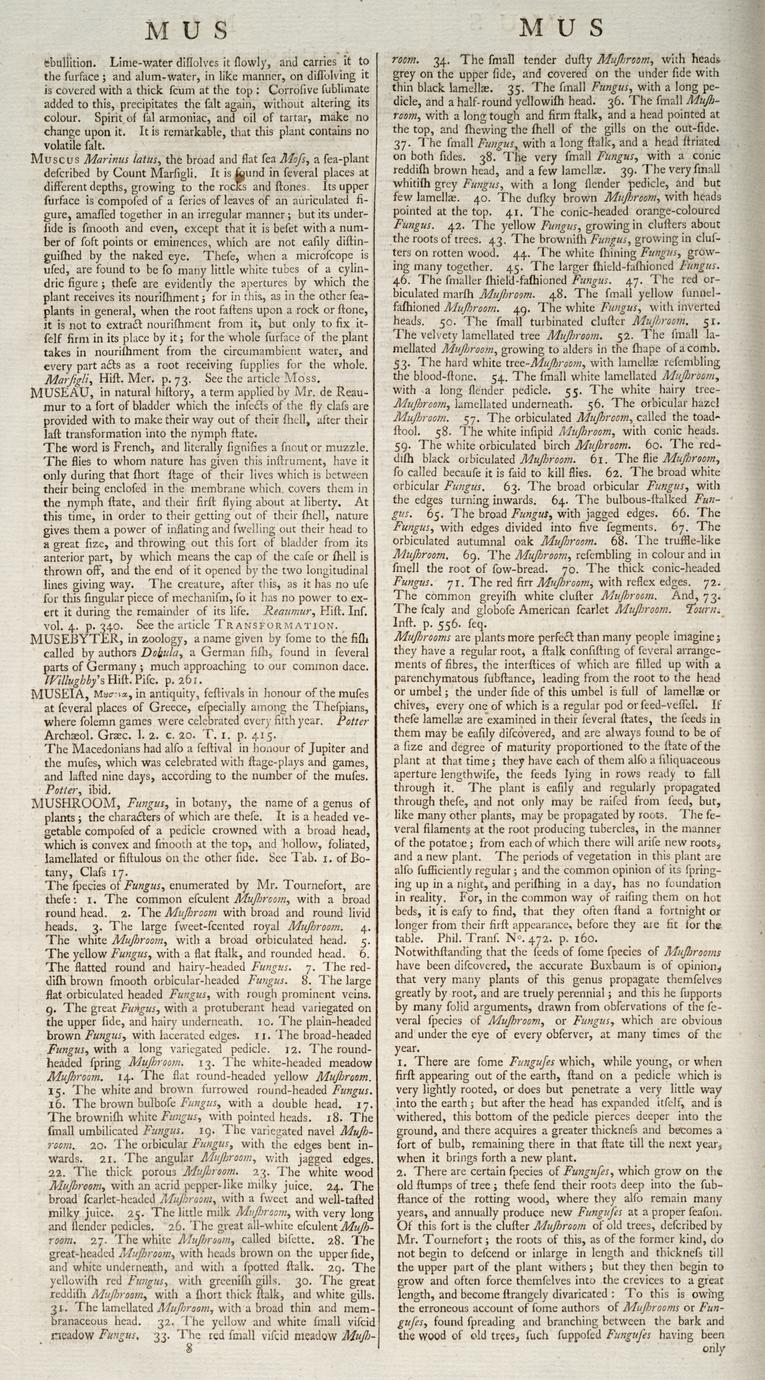 MUS
ebullition. Lime-water diſſolves it ſlowly, and carries it to
the ſurface; and alum-water, in like manner, on diſſolving it
is covered with a thick ſcum at the top: Corroſive ſublimate
added to this, precipitates the ſalt again, without altering its
colour. Spirit of ſal armoniac, and oil of tartar, make no
change upon it. It is remarkable, that this plant contains no
volatile ſalt.
MUSCUS Marinus latus, the broad and flat ſea Moſs, a ſea-plant
deſcribed by Count Marſigli. It is found in ſeveral places at
different depths, growing to the rocks and ſtones. Its upper
ſurface is compoſed of a ſeries of leaves of an auriculated fi-
gure, amaſſed together in an irregular manner; but its under-
ſide is ſmooth and even, except that it is beſet with a num-
ber of ſoft points or eminences, which are not eaſily diſtin-
guiſhed by the naked eye. Theſe, when a microſcope is
uſed, are found to be ſo many little white tubes of a cylin-
dric figure; theſe are evidently the apertures by which the
plant receives its nouriſhment; for in this, as in the other ſea-
plants in general, when the root faſtens upon a rock or ſtone,
it is not to extract nouriſhment from it, but only to fix it-
ſelf firm in its place by it; for the whole ſurface of the plant
takes in nouriſhment from the circumambient water, and
every part acts as a root receiving ſupplies for the whole.
Marſigli, Hiſt. Mer. p. 73. See the article MOSS.
MUSEAU, in natural hiſtory, a term applied by Mr. de Reau-
mur to a ſort of bladder which the inſects of the fly claſs are
provided with to make their way out of their ſhell, after their
laſt transformation into the nymph ſtate.
The word is French, and literally ſignifies a ſnout or muzzle.
The flies to whom nature has given this inſtrument, have it
only during that ſhort ſtage of their lives which is between
their being encloſed in the membrane which covers them in
the nymph ſtate, and their firſt flying about at liberty. At
this time, in order to their getting out of their ſhell, nature
gives them a power of inflating and ſwelling out their head to
a great ſize, and throwing out this ſort of bladder from its
anterior part, by which means the cap of the caſe or ſhell is
thrown off, and the end of it opened by the two longitudinal
lines giving way. The creature, after this, as it has no uſe
for this ſingular piece of mechaniſm, ſo it has no power to ex-
ert it during the remainder of its life. Reaumur, Hiſt. Inſ.
vol. 4. p. 340. See the article TRANSFORMATION.
MUSEBYTER, in zoology, a name given by ſome to the fiſh
called by authors Dobula, a German fiſh, found in ſeveral
parts of Germany; much approaching to our common dace.
Willughby's Hiſt. Piſc. p. 261.
MUSEIA, Μυσεια, in antiquity, feſtivals in honour of the muſes
at ſeveral places of Greece, eſpecially among the Theſpians,
where ſolemn games were celebrated every fifth year. Potter
Archæol. Græc. l. 2. c. 20. T. 1. p. 415.
The Macedonians had alſo a feſtival in honour of Jupiter and
the muſes, which was celebrated with ſtage-plays and games,
and laſted nine days, according to the number of the muſes.
Potter, ibid.
MUSHROOM, Fungus, in botany, the name of a genus of
plants; the characters of which are theſe. It is a headed ve-
getable compoſed of a pedicle crowned with a broad head,
which is convex and ſmooth at the top, and hollow, foliated,
lamellated or fiſtulous on the other ſide. See Tab. 1. of Bo-
tany, Claſs 17.
The ſpecies of Fungus, enumerated by Mr. Tournefort, are
theſe: 1. The common eſculent Muſhroom, with a broad
round head. 2. The Muſhroom with broad and round livid
heads. 3. The large ſweet-ſcented royal Muſhroom. 4.
The white Muſhroom, with a broad orbiculated head. 5.
The yellow Fungus, with a flat ſtalk, and rounded head. 6.
The flatted round and hairy-headed Fungus. 7. The red-
diſh brown ſmooth orbicular-headed Fungus. 8. The large
flat orbiculated headed Fungus, with rough prominent veins.
9. The great Fungus, with a protuberant head variegated on
the upper ſide, and hairy underneath. 10. The plain-headed
brown Fungus, with lacerated edges. 11. The broad-headed
Fungus, with a long variegated pedicle. 12. The round-
headed ſpring Muſhroom. 13. The white-headed meadow
Muſhroom. 14. The flat round-headed yellow Muſhroom.
15. The white and brown furrowed round-headed Fungus.
16. The brown bulboſe Fungus, with a double head. 17.
The browniſh white Fungus, with pointed heads. 18. The
ſmall umbilicated Fungus. 19. The variegated navel Muſh-
room. 20. The orbicular Fungus, with the edges bent in-
wards. 21. The angular Muſhroom, with jagged edges.
22. The thick porous Muſhroom. 23. The white wood
Muſhroom, with an acrid pepper-like milky juice. 24. The
broad ſcarlet-headed Muſhroom, with a ſweet and well-taſted
milky juice. 25. The little milk Muſhroom, with very long
and ſlender pedicles. 26. The great all-white eſculent Muſh-
room. 27. The white Muſhroom, called biſette. 28. The
great-headed Muſhroom, with heads brown on the upper ſide,
and white underneath, and with a ſpotted ſtalk. 29. The
yellowiſh red Fungus, with greeniſh gills. 30. The great
reddiſh Muſhroom, with a ſhort thick ſtalk, and white gills.
31. The lamellated Muſhroom, with a broad thin and mem-
branaceous head. 32. The yellow and white ſmall viſcid
meadow Fungus. 33. The red ſmall viſcid meadow Muſh-
8
MUS
room. 34. The ſmall tender duſty Muſhroom, with heads
grey on the upper ſide, and covered on the under ſide with
thin black lamellæ. 35. The ſmall Fungus, with a long pe-
dicle, and a half-round yellowiſh head. 36. The ſmall Muſh-
room, with a long tough and firm ſtalk, and a head pointed at
the top, and ſhewing the ſhell of the gills on the out-ſide.
37. The ſmall Fungus, with a long ſtalk, and a head ſtriated
on both ſides. 38. The very ſmall Fungus, with a conic
reddiſh brown head, and a few lamellæ. 39. The very ſmall
whitiſh grey Fungus, with a long ſlender pedicle, and but
few lamellæ. 40. The duſky brown Muſhroom, with heads
pointed at the top. 41. The conic-headed orange-coloured
Fungus. 42. The yellow Fungus, growing in cluſters about
the roots of trees. 43. The browniſh Fungus, growing in cluſ-
ters on rotten wood. 44. The white ſhining Fungus, grow-
ing many together. 45. The larger ſhield-faſhioned Fungus.
46. The ſmaller ſhield-faſhioned Fungus. 47. The red or-
biculated marſh Muſhroom. 48. The ſmall yellow funnel-
faſhioned Muſhroom. 49. The white Fungus, with inverted
heads. 50. The ſmall turbinated cluſter Muſhroom. 51.
The velvety lamellated tree Muſhroom. 52. The ſmall la-
mellated Muſhroom, growing to alders in the ſhape of a comb.
53. The hard white tree-Muſhroom, with lamellæ reſembling
the blood-ſtone. 54. The ſmall white lamellated Muſhroom,
with a long ſlender pedicle. 55. The white hairy tree-
Muſhroom, lamellated underneath. 56. The orbicular hazel
Muſhroom. 57. The orbiculated Muſhroom, called the toad-
ſtool. 58. The white inſipid Muſhroom, with conic heads.
59. The white orbiculated birch Muſhroom. 60. The red-
diſh black orbiculated Muſhroom. 61. The flie Muſhroom,
ſo called becauſe it is ſaid to kill flies. 62. The broad white
orbicular Fungus. 63. The broad orbicular Fungus, with
the edges turning inwards. 64. The bulbous-ſtalked Fun-
gus. 65. The broad Fungus, with jagged edges. 66. The
Fungus, with edges divided into five ſegments. 67. The
orbiculated autumnal oak Muſhroom. 68. The truffle-like
Muſhroom. 69. The Muſhroom, reſembling in colour and in
ſmell the root of ſow-bread. 70. The thick conic-headed
Fungus. 71. The red firr Muſhroom, with reflex edges. 72.
The common greyiſh white cluſter Muſhroom. And, 73.
The ſcaly and globoſe American ſcarlet Muſhroom. Tourn.
Inſt. p. 556. ſeq.
Muſhrooms are plants more perfect than many people imagine;
they have a regular root, a ſtalk conſiſting of ſeveral arrange-
ments of fibres, the interſtices of which are filled up with a
parenchymatous ſubſtance, leading from the root to the head
or umbel; the under ſide of this umbel is full of lamellæ or
chives, every one of which is a regular pod or ſeed-veſſel. If
theſe lamellæ are examined in their ſeveral ſtates, the ſeeds in
them may be eaſily diſcovered, and are always found to be of
a ſize and degree of maturity proportioned to the ſtate of the
plant at that time; they have each of them alſo a ſiliquaceous
aperture lengthwiſe, the ſeeds lying in rows ready to fall
through it. The plant is eaſily and regularly propagated
through theſe, and not only may be raiſed from ſeed, but,
like many other plants, may be propagated by roots. The ſe-
veral filaments at the root producing tubercles, in the manner
of the potatoe; from each of which there will ariſe new roots,
and a new plant. The periods of vegetation in this plant are
alſo ſufficiently regular; and the common opinion of its ſpring-
ing up in a night, and periſhing in a day, has no foundation
in reality. For, in the common way of raiſing them on hot
beds, it is eaſy to find, that they often ſtand a fortnight or
longer from their firſt appearance, before they are fit for the
table. Phil. Tranſ. Nº. 472. p. 160.
Notwithſtanding that the ſeeds of ſome ſpecies of Muſhrooms
have been diſcovered, the accurate Buxbaum is of opinion,
that very many plants of this genus propagate themſelves
greatly by root, and are truely perennial; and this he ſupports
by many ſolid arguments, drawn from obſervations of the ſe-
veral ſpecies of Muſhroom, or Fungus, which are obvious
and under the eye of every obſerver, at many times of the
year.
1. There are ſome Funguſes which, while young, or when
firſt appearing out of the earth, ſtand on a pedicle which is
very lightly rooted, or does but penetrate a very little way
into the earth; but after the head has expanded itſelf, and is
withered, this bottom of the pedicle pierces deeper into the
ground, and there acquires a greater thickneſs and becomes a
ſort of bulb, remaining there in that ſtate till the next year,
when it brings forth a new plant.
2. There are certain ſpecies of Funguſes, which grow on the
old ſtumps of tree; theſe ſend their roots deep into the ſub-
ſtance of the rotting wood, where they alſo remain many
years, and annually produce new Funguſes at a proper ſeaſon.
Of this ſort is the cluſter Muſhroom of old trees, deſcribed by
Mr. Tournefort; the roots of this, as of the former kind, do
not begin to deſcend or inlarge in length and thickneſs till
the upper part of the plant withers; but they then begin to
grow and often force themſelves into the crevices to a great
length, and become ſtrangely divaricated: To this is owing
the erroneous account of ſome authors of Muſhrooms or Fun-
guſes, found ſpreading and branching between the bark and
the wood of old trees, ſuch ſuppoſed Funguſes having been
only